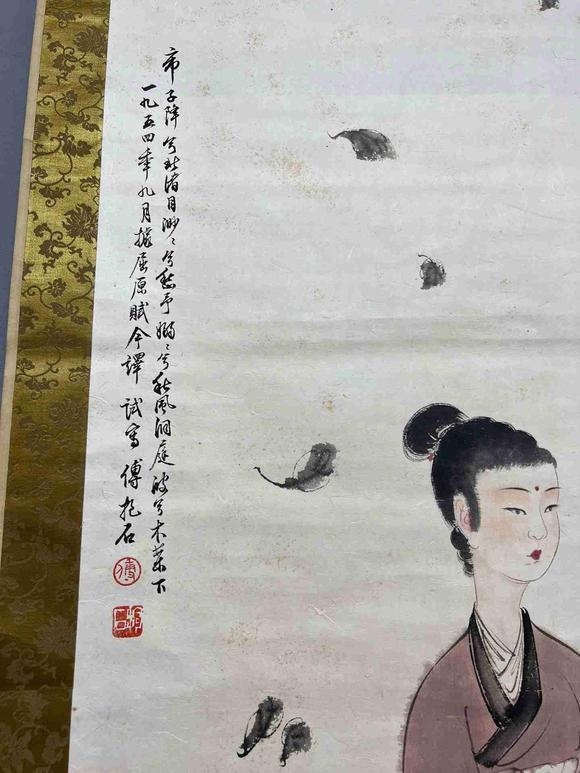 帝子降兮北渚目渺〻兮愁予嫋〻兮秋風洞庭波兮木葉下
一九五四年九月據屈原賦今譯 試寫 傅抱石
傅